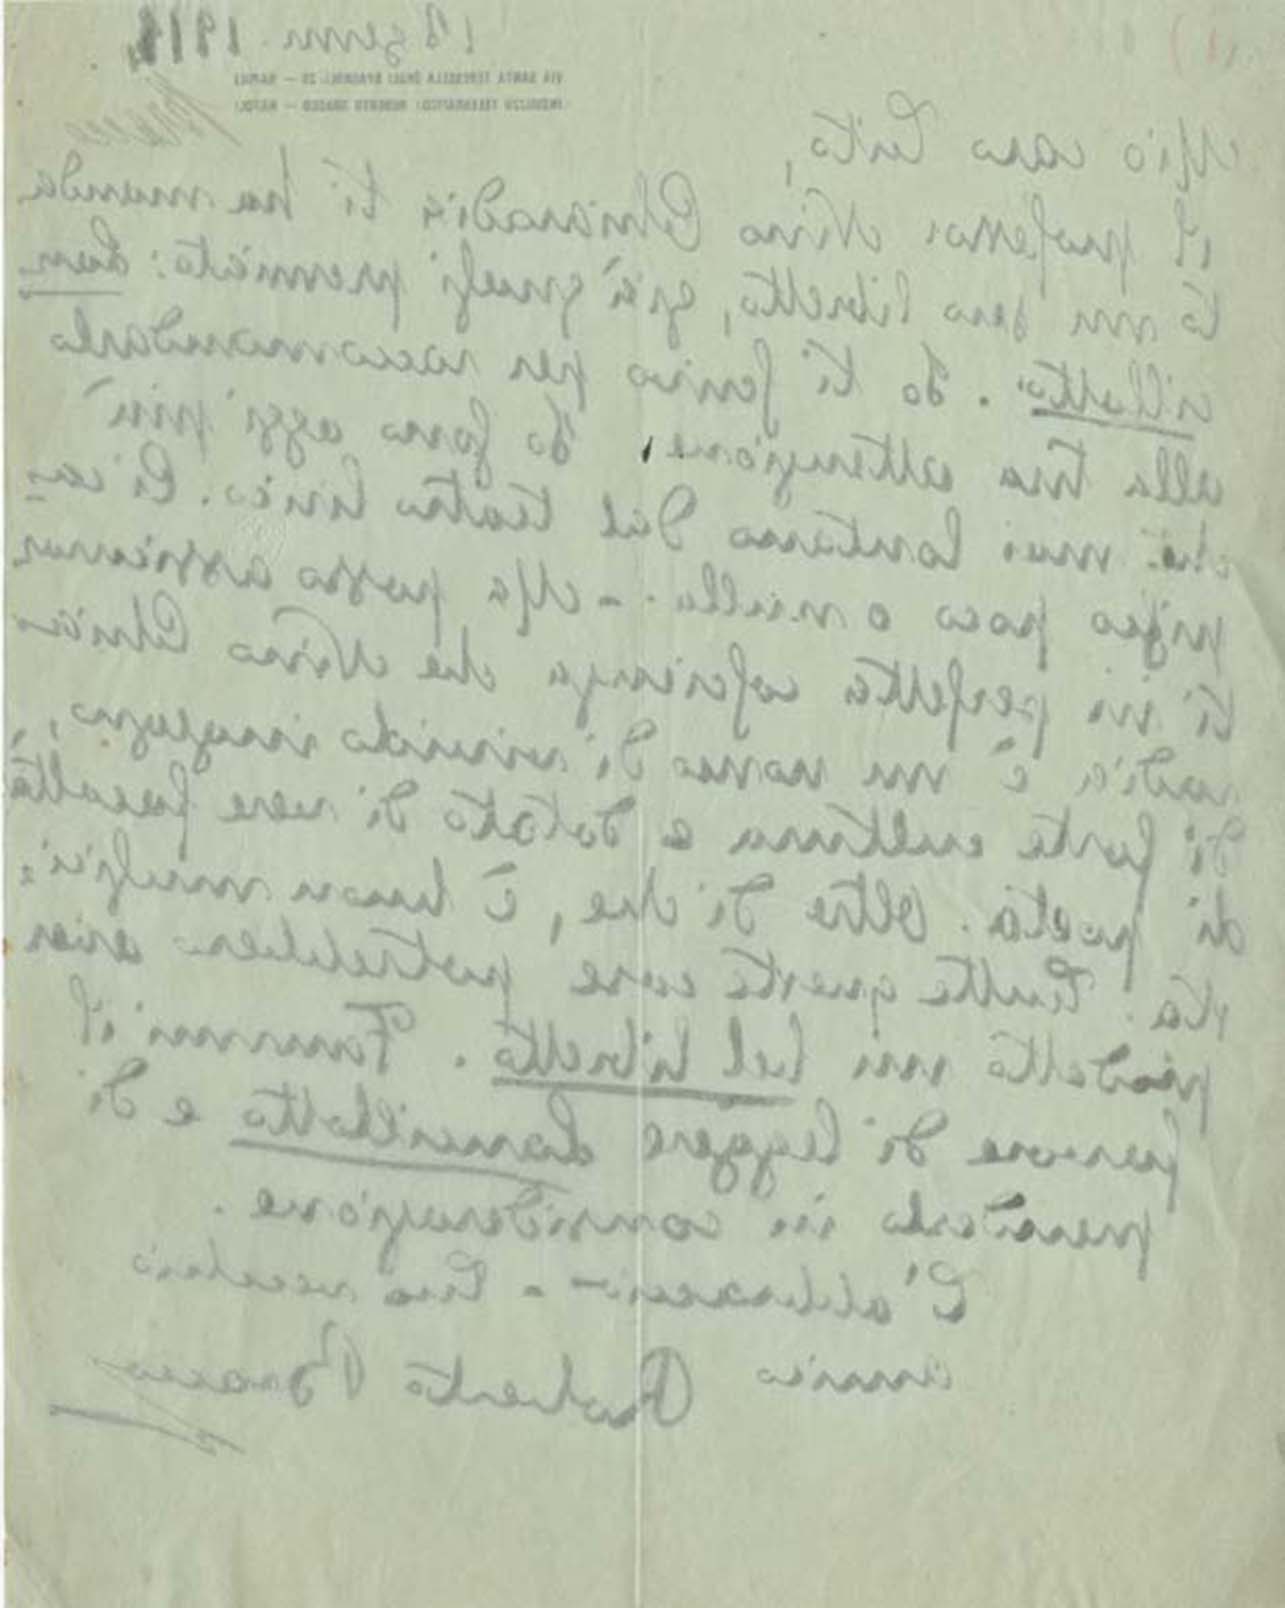 18 genn. 1918.
VIA SANTA TERESELLA DEGLI SPAGNOLI, 29 — NAPOLI
INDIRIZZO TELEGRAFICO: ROBERTO BRACCO — NAPOLI
Bracco
Mio caro Tito,
Il professor Nino Chiaradia ti ha manda
to un suo libretto, già quasi premiato:
. Io ti scrivo per raccomandarlo
alla tua attenzione. Io sono oggi più
che mai lontano dal teatro lirico. Ci ca=
pisco poco o nulla. – Ma posso assicurar
ti in perfetta coscienza che Nino Chia
radia è un uomo di vivido ingegno,
di forte cultura e dotato di vere facoltà
di poeta. Oltre di che, è buon musici=
sta. Tutte queste cose potrebbero aver
prodotto un bel libretto. Fammi il
favore di leggere e di
prenderlo in considerazione.
T'abbraccio – tuo vecchio
amico Roberto Bracco